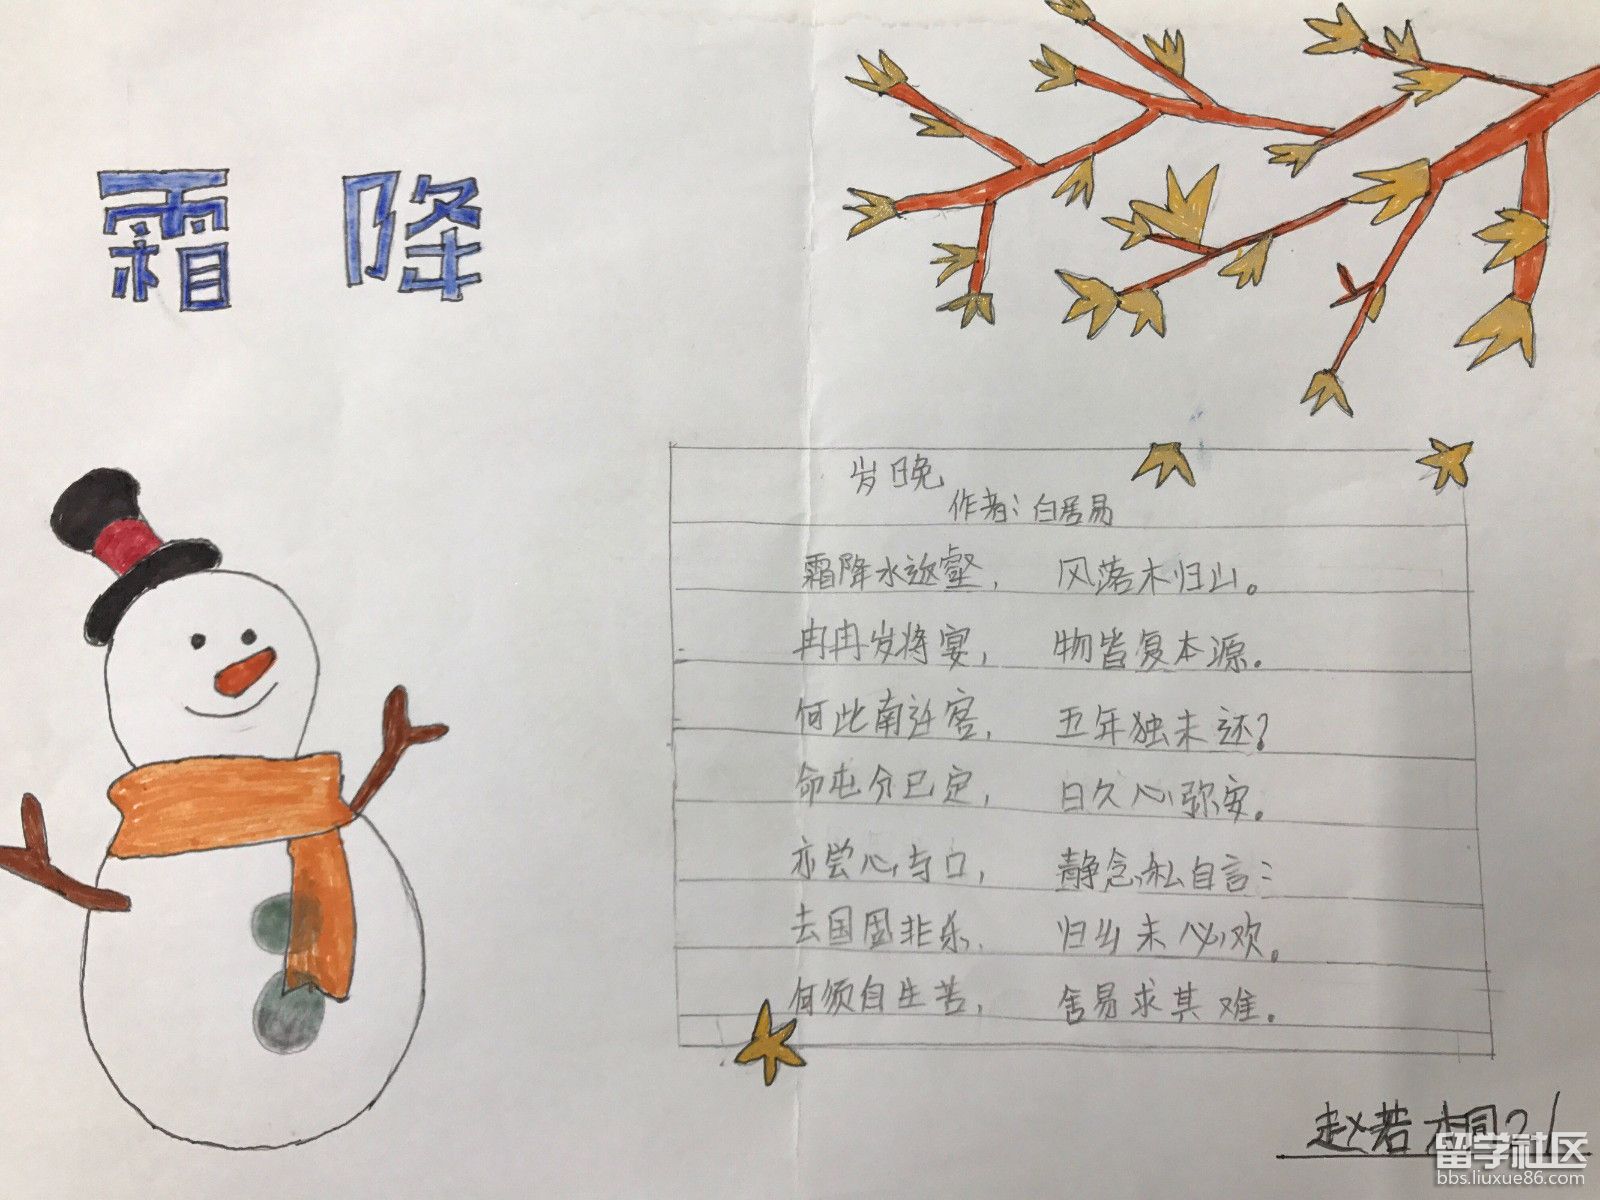 霜降
岁晚
作者：白居易
霜降水返壑， 风落木归山。
冉冉岁将宴， 物皆复本源。
何此南迁客， 五年独未还？
命屯分已定， 日久心弥安。
亦尝心与口， 静念私自言：
去国固非乐， 归乡未必欢。
何须自生苦， 舍易求其难。
赵若桐 21
留学社区
bbs.liuxue86.com